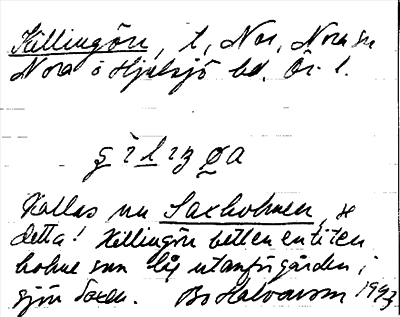 Killingön, t, Nor, Nora sn
Nora o Hjulsjö bd. Ör. l.
Kallas nu Saxholmen, se
detta! Killingön bet en liten
holme som låg utanför gården i
sjön Saxen. Bo Halvarson 1993